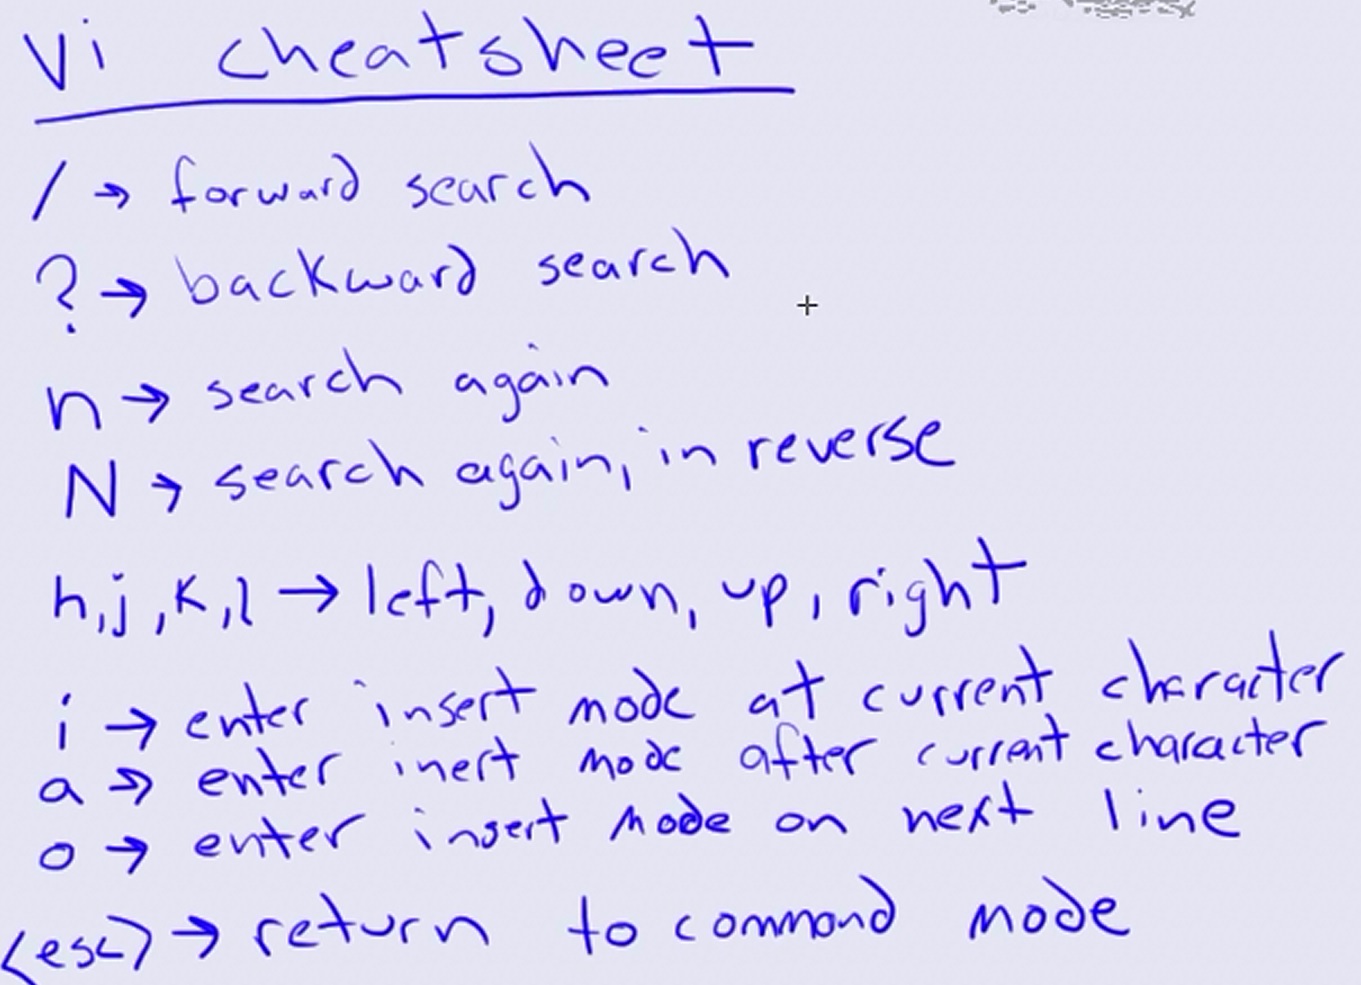 Vi cheatsheet
/ → forward search
? → backward search
n → search again
N → search again, in reverse
h,j,k,l → left, down, up, right
i → enter insert mode at current character
a → enter inert mode after current character
o → enter insert mode on next line
<esc> → return to command mode